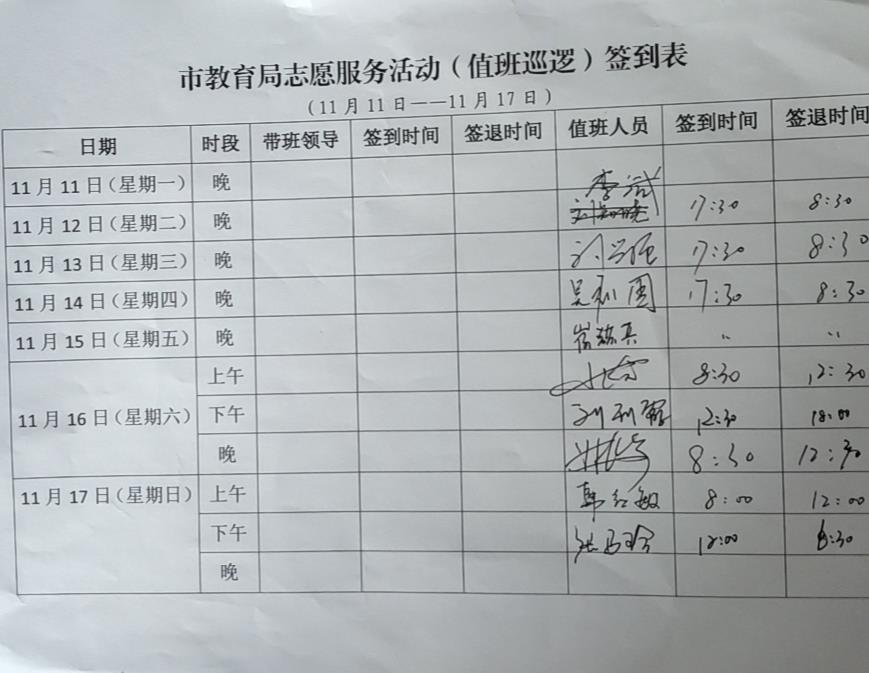 市教育局志愿服务活动（值班巡逻）签到表
（11月11日——11月17日）
日期 时段 带班领导 签到时间 签退时间 值班人员 签到时间 签退时间
11月11日（星期一） 晚
11月12日（星期二） 晚 17:30 8:30
11月13日（星期三） 晚 17:30 8:30
11月14日（星期四） 晚 17:30 8:30
11月15日（星期五） 晚 〃 〃
上午 8:30 12:30
11月16日（星期六） 下午 12:30 18:00
晚 8:30 12:30
11月17日（星期日） 上午 韩红敏 8:00 12:00
下午 12:00 6:30
晚